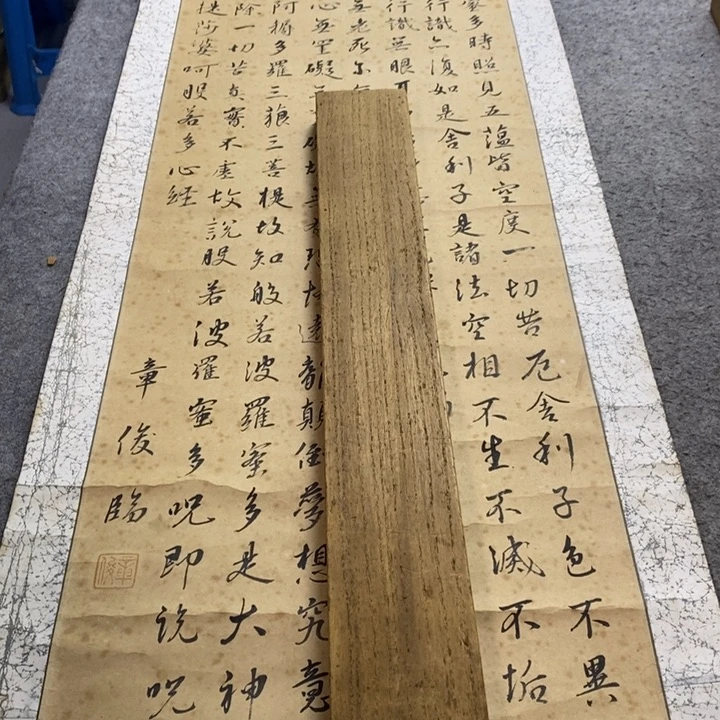 多時照見五蘊皆空度一切苦厄舍利子色不異
行識亦復如是舍利子是諸法空相不生不滅不垢
行識無眼
無老死亦
心無罣礙礙故無有恐怖遠離顛倒夢想究竟
阿耨多羅三藐三菩提故知般若波羅蜜多是大神
除一切苦真實不虛故說般若波羅蜜多呪即說呪
提薩婆呵般若多心經
章俊臨